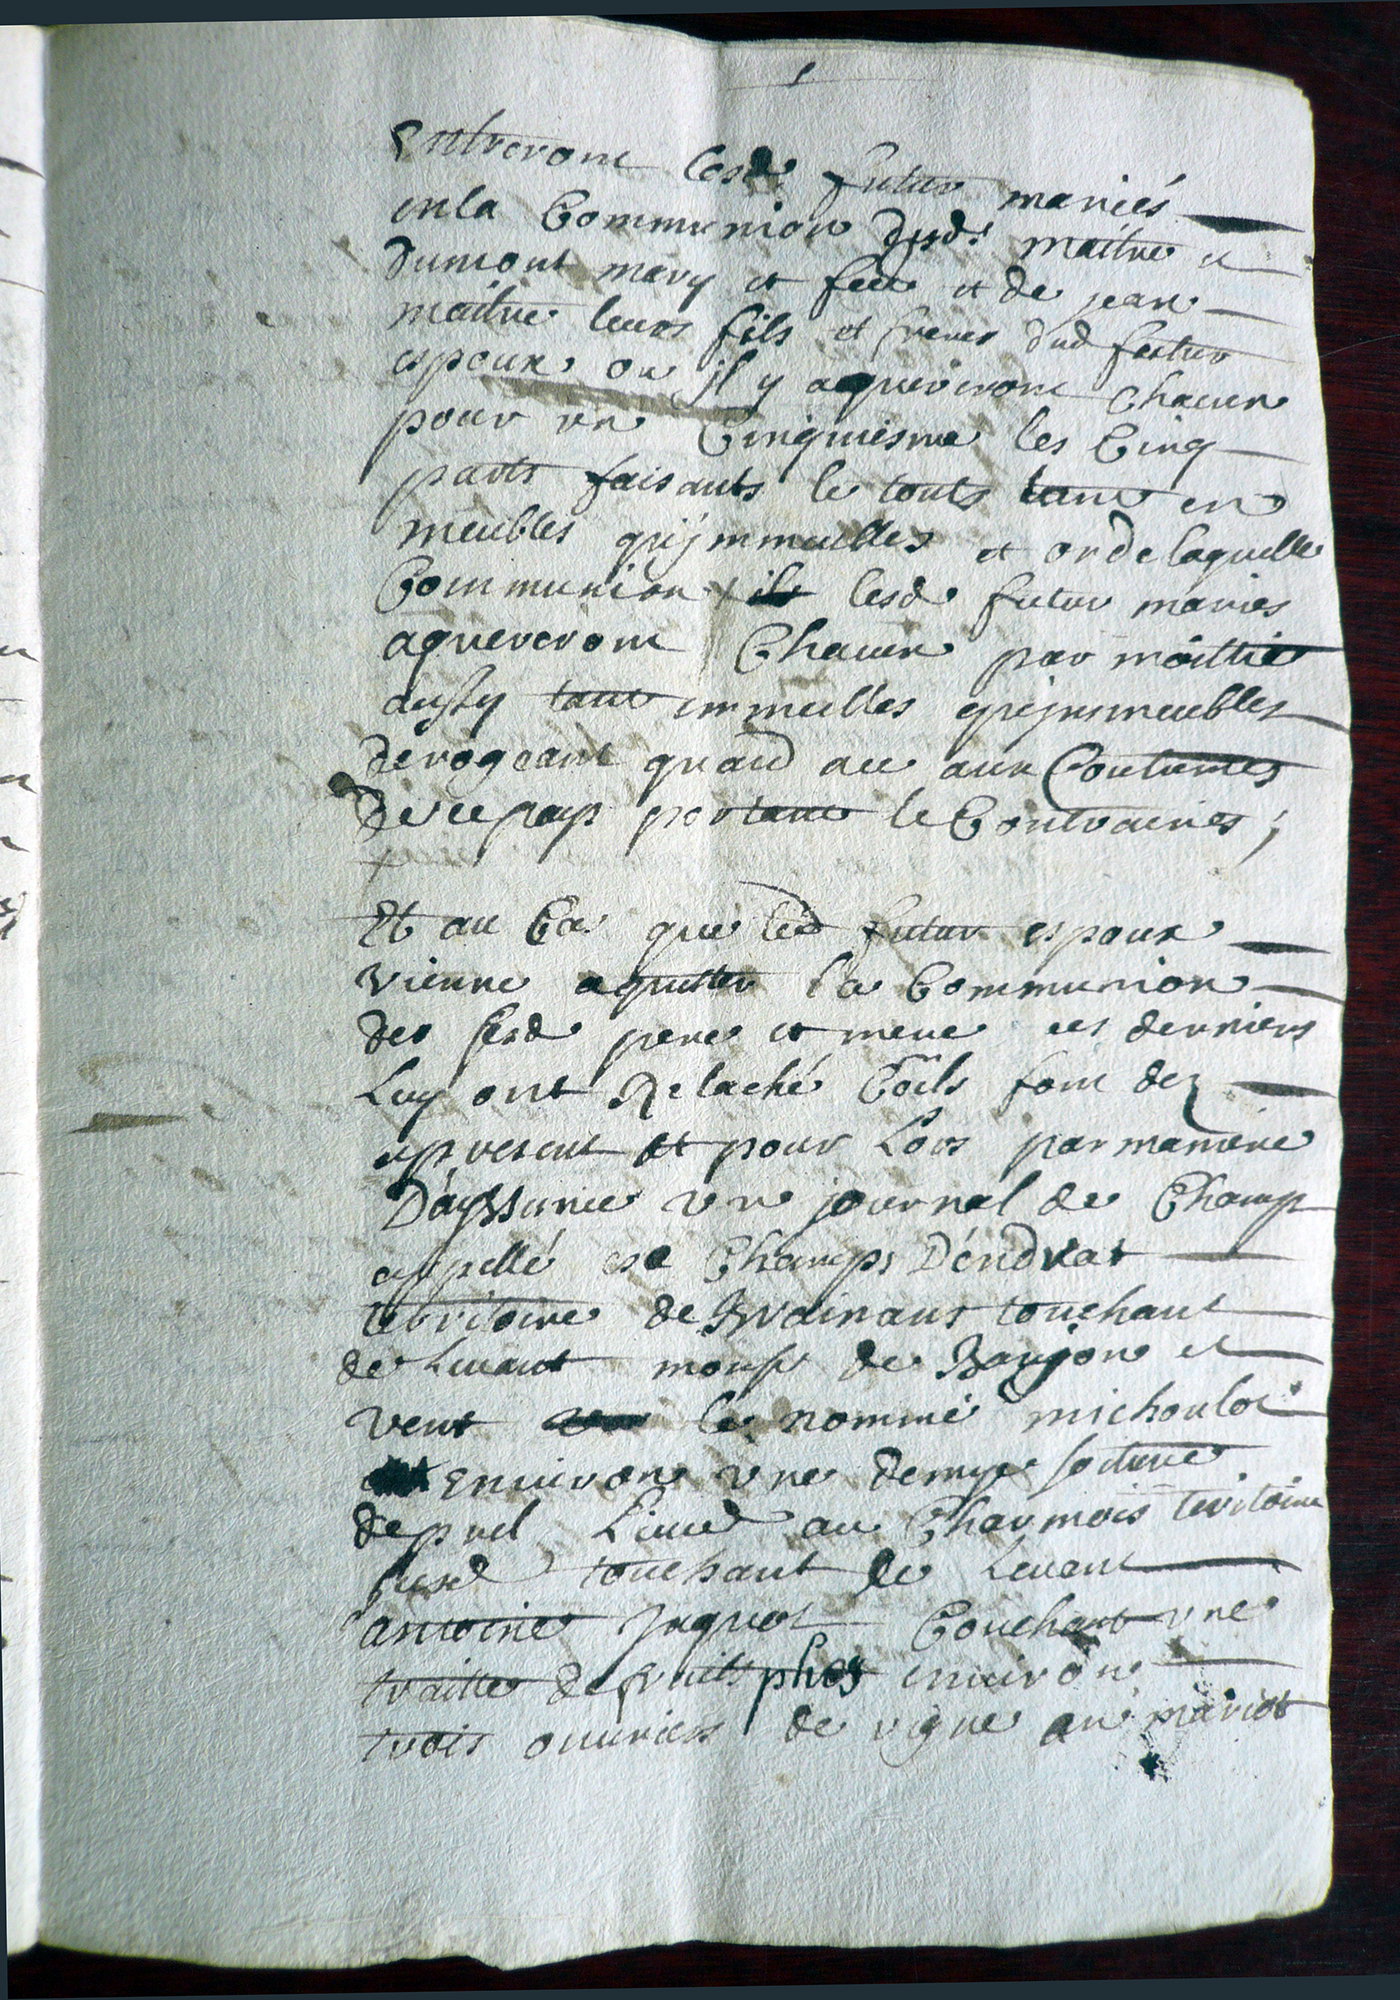 Entreront lesd. futur mariés
en la Communion dusd. maitre et
Dumont mary et fee et de jean
maitre leurs fils et freres dud futur
espoux ou jl y aqueriront Chacun
pour un Cinquiesme les Cinq
parts faisants le touts tant en
meubles qu'jmmeubles et onde laquelle
Communion lesd futur maries
aquereront Chacun par moittié
aussy tant immeubles qu'jmmeubles
dérogeant quand au aux Coutumes
de ce pays portant le Contraires ;
Et au Cas que led futur espoux
vienne aquitter la Communion
des sesd pere et mere ces derniers
Luy ont Relaché Coils font dez
apresent et pour Lors par maniere
un journal de Champ
appellé es Champs D'éndvas
territoire de Brainans touchant
de Levant monsr de Baujon et
vent le nommé michoulot
environ une demye soiture
de prel Lieud au Charmois teritoire
susd touchant de Levant
antoine Jaquot Couchant une
traitte de fruits plus environ
trois ouvriers de vigne au mariot